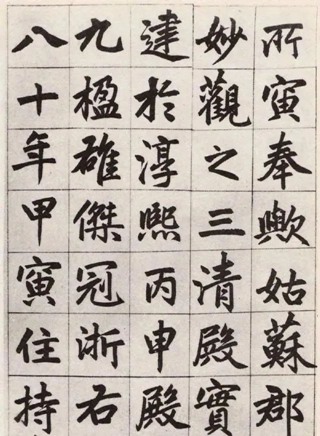 所寅奉歟姑蘇郡
妙觀之三清殿實
建於淳熙丙申殿
九楹雄傑冠浙右
八十年甲寅住持